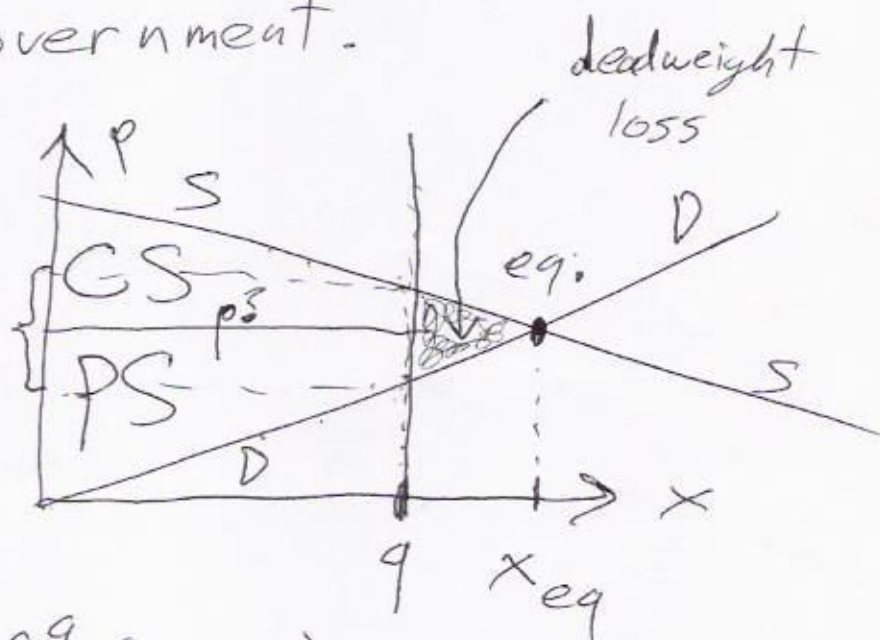 overnment.
deadweight
loss
p
S
D
CS
eq.
p
PS
S
D
x
q
x eq